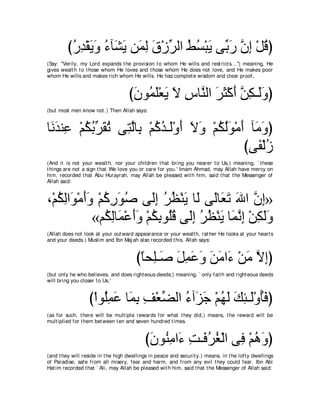 (قُلْ إِنَّ رَبِّى يَبْسُطُ الرِّزْقَ لِمَن يَشَآءُ وَيَقْدِرُ)
(Say: "Verily, my Lord expands the provision to whom He wills and restricts...") meaning, He
gives wealth to those whom He loves and those whom He does not love, and He makes poor
whom He wills and makes rich whom He wills. He has complete wisdom and clear proof,
(وَلَـكِنَّ أَكْثَرَ النَّاسِ لاَ يَعْلَمُونَ)
(but most men know not.) Then Allah says:
(وَمَآ أَمْوَلُكُمْ وَلاَ أَوْلَـدُكُمْ بِالَّتِى تُقَرِّبُكُمْ عِندَنَا
زُلْفَى)
(And it is not your wealth, nor your children that bring you nearer to Us,) meaning, `these
things are not a sign that We love you or care for you.' Imam Ahmad, may Allah have mercy on
him, recorded that Abu Hurayrah, may Allah be pleased with him, said that the Messenger of
Allah said:
«إِنَّ اللهَ تَعَالَى لَا يَنْظُرُ إِلَى صُوَرِكُمْ وَأَمْوَالِكُمْ،
وَلكِنْ إِنَّمَا يَنْظُرُ إِلَى قُلُوبِكُمْ وَأَعْمَالِكُم»
(Allah does not look at your outward appearance or your wealth, rather He looks at your hearts
and your deeds.) Muslim and Ibn Majah also recorded this. Allah says:
(إِلاَّ مَنْ ءَامَنَ وَعَمِلَ صَـلِحاً)
(but only he who believes, and does righteous deeds;) meaning, `only faith and righteous deeds
will bring you closer to Us.'
(فَأُوْلَـئِكَ لَهُمْ جَزَآءُ الضِّعْفِ بِمَا عَمِلُواْ)
(as for such, there will be multiple rewards for what they did,) means, the reward will be
multiplied for them between ten and seven hundred times.
(وَهُمْ فِى الْغُرُفَـتِ ءَامِنُونَ)
(and they will reside in the high dwellings in peace and security.) means, in the lofty dwellings
of Paradise, safe from all misery, fear and harm, and from any evil they could fear. Ibn Abi
Hatim recorded that `Ali, may Allah be pleased with him, said that the Messenger of Allah said: